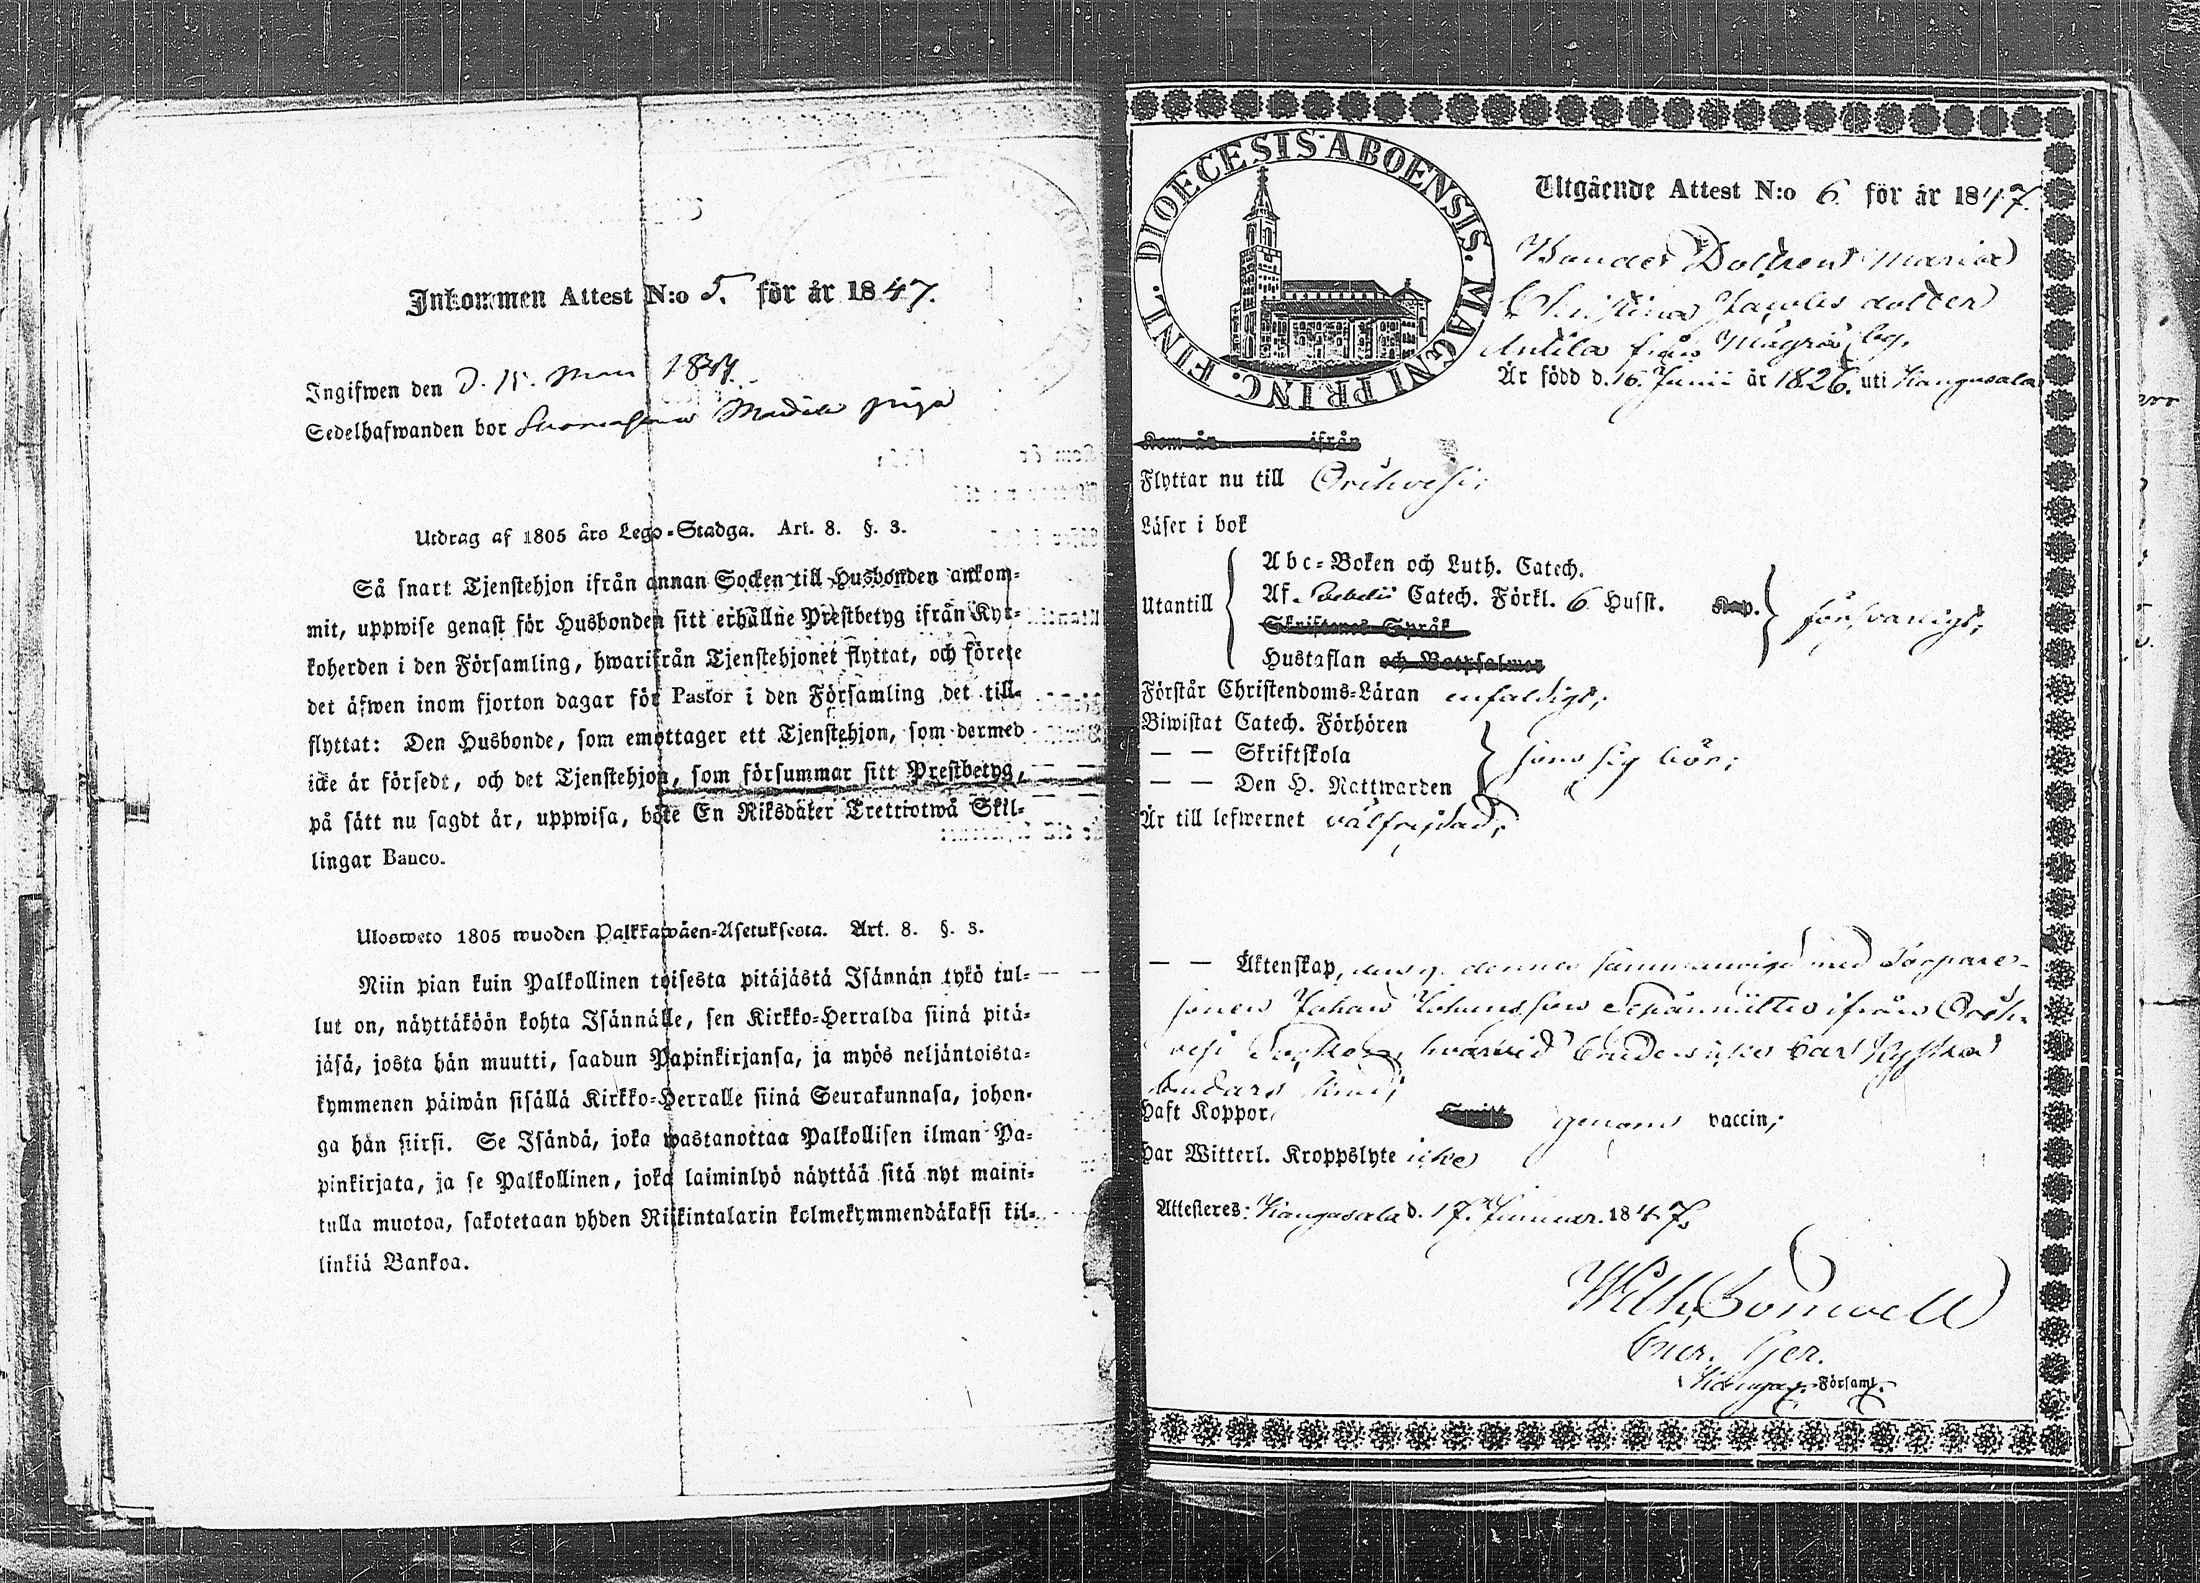 Inkommen Attest N:o 5. för år 1847.
Ingifwen den D. 15. 1847.
Sedelhafwanden bor piga
Utdrag af 1805 års Lego-Stadga. Art. 8. §. 3.
Så snart Tjenstehjon ifrån annan Socken till Husbonden ankom-
mit, uppwise genast för Husbonden sitt erhållne Prestbetyg ifrån Kyr-
koherden i den Församling, hwarifrån Tjenstehjonet flyttat, och förete
det äfwen inom fjorton dagar för Pastor i den Församling det till-
flyttat: Den Husbonde, som emottager ett Tjenstehjon, som dermed
icke är försedt, och det Tjenstehjon, som försummar sitt Prestbetyg,
på sätt nu sagdt är, uppwisa, böte En Riksdaler Trettiotwå Skil-
lingar Banco.
Ulosweto 1805 wuoden Palkkawäen-Asetuksesta. Art. 8. §. 3.
Niin pian kuin Palkollinen toisesta pitäjästä Isännän tykö tul-
lut on, näyttäköön kohta Isännälle, sen Kirkko-Herralda siinä pitä-
jäsä, josta hän muutti, saadun Papinkirjansa, ja myös neljäntoista-
kymmenen päiwän sisällä Kirkko-Herralle siinä Seurakunnasa, johon-
ga hän siirsi. Se Isändä, joka wastanottaa Palkollisen ilman Pa-
pinkirjata, ja se Palkollinen, joka laiminlyö näyttää sitä nyt maini-
tulla muotoa, sakotetaan yhden Riikintalarin kolmekymmendäkaksi kil-
linkiä Bankoa.
DIOECESIS ABOENSIS. MAGNI PRINC. FINL.
Utgående Attest N:o 6 för år 1847.
Bonde Dottren Maria
Christina Jacobs dotter
Antila från by.
Är född d. 16. Junii år 1826. uti Kangasala
Kom år ifrån
Flyttar nu till Orihvesi;
Läser i bok
Utantill
Abc-Boken och Luth. Catech.
Af Catech. Förkl. 6 Husst. Kap.
Skriftenes Språk
Hustaflan och Botpsalmer
försvarligt;
Förstår Christendoms-Läran enfaldigt;
Biwistat Catech. Förhören
— — Skriftskola
— — Den H. Nattwarden
som sig bör;
Är till lefwernet välfrejdad;
— — Äktenskap, denna med Torpare-
sonen Johan Johansson ifrån Orih-
vesi Socken, hvarvid
Haft Koppor genom vaccin;
Har Witterl. Kroppslyte icke
Attesteres: Kangasala d. 17. Januar. 1847.
Wilh.
Församl.